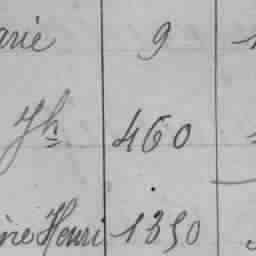 arie 9
Jh 460
ine Henri 1350